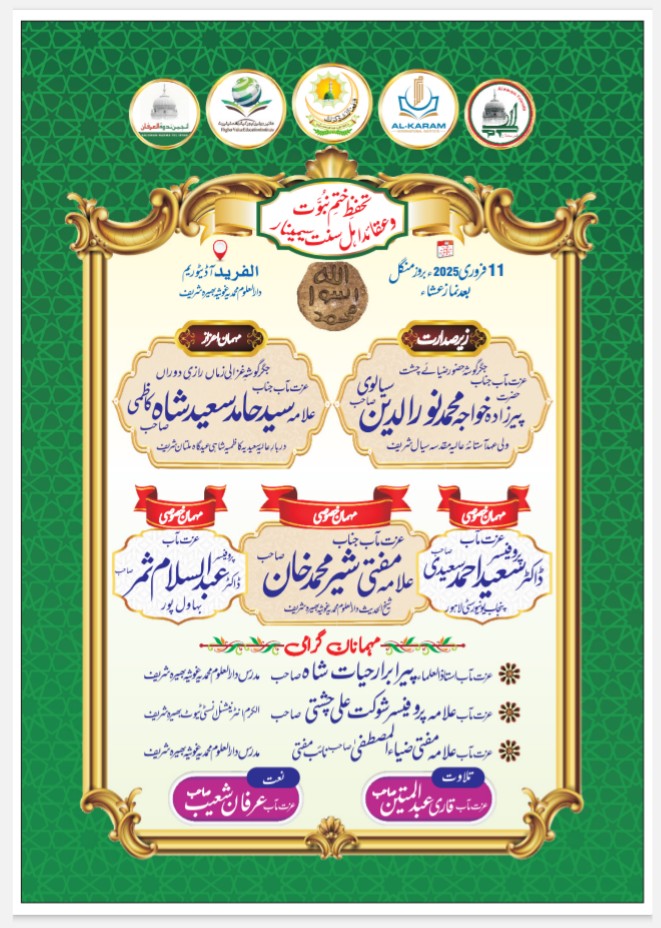 انجمن ندوۃ العرفان
Higher Value Education Institute
AL-KARAM
INTERNATIONAL INSTITUTE
تحفظِ ختمِ نبوّت
وعقائد اہل سنت سیمینار
11 فروری 2025ء بروز منگل
بعد نماز عشاء
الفرید آڈیٹوریم
دارالعلوم محمدیہ غوثیہ بھیرہ شریف
اللہ
رسول
محمد
زیر صدارت
جگر گوشہ حضور ضیائے چشت
عزت مآب جناب
حضرت پیرزادہ خواجہ محمد نور الدین سیالوی صاحب
ولی عہد آستانہ عالیہ مقدسہ سیال شریف
مہمان اعزاز
جگر گوشہ غزالی زماں رازی دوراں
عزت مآب جناب
علامہ سید حامد سعید شاہ کاظمی صاحب
دربار عالیہ سعیدیہ کاظمیہ شاہی عیدگاہ ملتان شریف
مہمان خصوصی
عزت مآب
ڈاکٹر پروفیسر سعید احمد سعیدی صاحب
پنجاب یونیورسٹی لاہور
مہمان خصوصی
عزت مآب جناب
علامہ مفتی شیر محمد خان صاحب
شیخ الحدیث دارالعلوم محمدیہ غوثیہ بھیرہ شریف
مہمان خصوصی
عزت مآب
پروفیسر ڈاکٹر عبدالسلام ثمر صاحب
بہاول پور
مہمانان گرامی
عزت مآب استاذ العلماء پیر ابرار حیات شاہ صاحب مدرس دارالعلوم محمدیہ غوثیہ بھیرہ شریف
عزت مآب علامہ پروفیسر شوکت علی چشتی صاحب الکرم انٹرنیشنل انسٹی ٹیوٹ بھیرہ شریف
عزت مآب علامہ مفتی ضیاء المصطفیٰ صاحب نائب مفتی مدرس دارالعلوم محمدیہ غوثیہ بھیرہ شریف
تلاوت
عزت مآب قاری عبدالمتین صاحب
نعت
عزت مآب عرفان شعیب صاحب